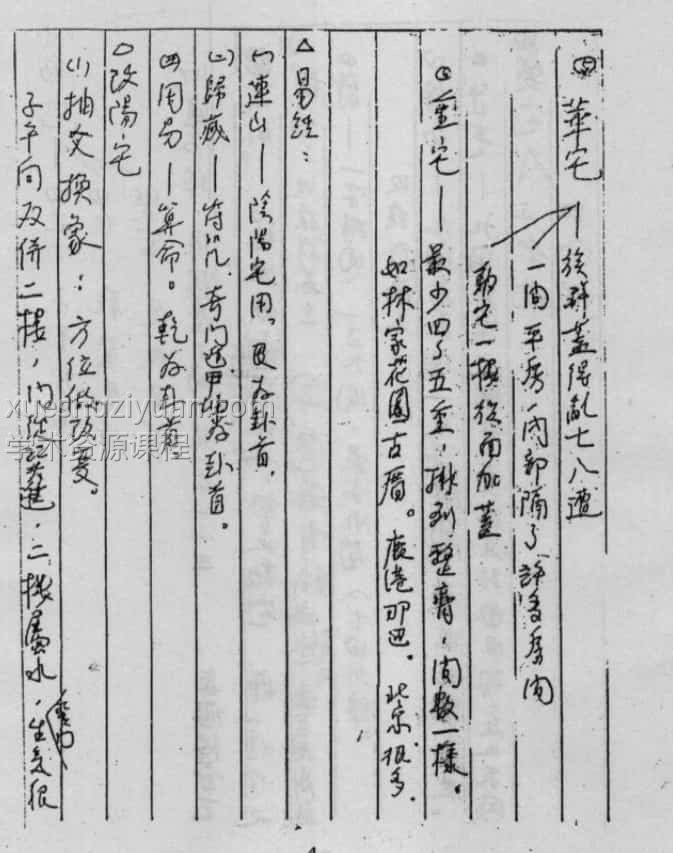 ㈣ 華宅—族群蓋得亂七八遭
一間平房、內部隔了許多房間
動宅一樓後面加蓋
㈤ 重宅—最少四了五重，排列整齊，間數一樣。
如林家花園古厝。鹿港那边。北京很多.
△易經：
㈠連山—陰陽宅用。艮為卦首.
㈡歸藏—符咒.奇門遁甲.坤為卦首。
㈣周易—算命。乾為卦首
△改陽宅
⑴抽爻換象：方位做改变。
子午向双併二樓，門從進，二樓屬水，生氣很
xueshuziyuan.com
学术资源课程